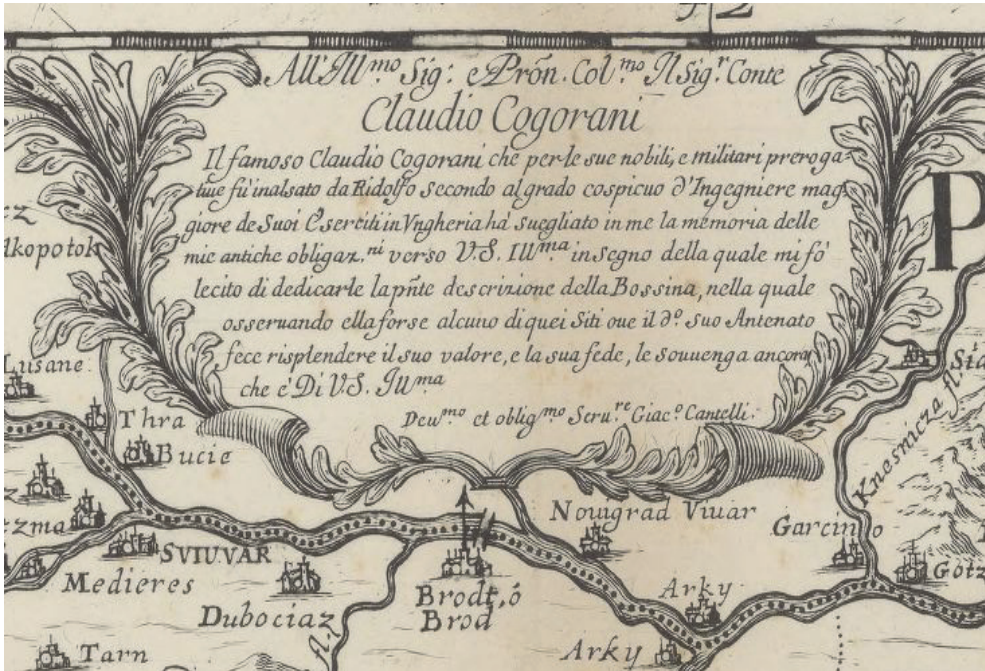 All'Ill.mo Sig: e Prõn. Col.mo Il Sig.r Conte
Claudio Cogorani
Il famoso Claudio Cogorani che per le sue nobili, e militari preroga-
tiue fù inalsato da Ridolfo secondo al grado cospicuo d'Ingegniere mag-
giore de Suoi Eserciti in Vngheria hà suegliato in me la memoria delle
mie antiche obligaz.ni verso V.S. Ill.ma in segno della quale mi fò
lecito di dedicarle la pñte descrizione della Bossina, nella quale
osseruando ella forse alcuno di quei Siti oue il d.o suo Antenato
fece risplendere il suo valore, e la sua fede, le souuenga ancora
che è Di V.S. Ill.ma
Deu.mo et oblig.mo Seru.re Giac.o Cantelli.
P
dkopotok
Lusane
Sia
Thra
Bucie
Knesnicza fl.
Nouigrad Viuar
zma
Garcinio
SVIUVAR
Medieres
Gotz
Dubociaz
Brodt, ó
Brod
Arky
Arky
Tarn
fl.